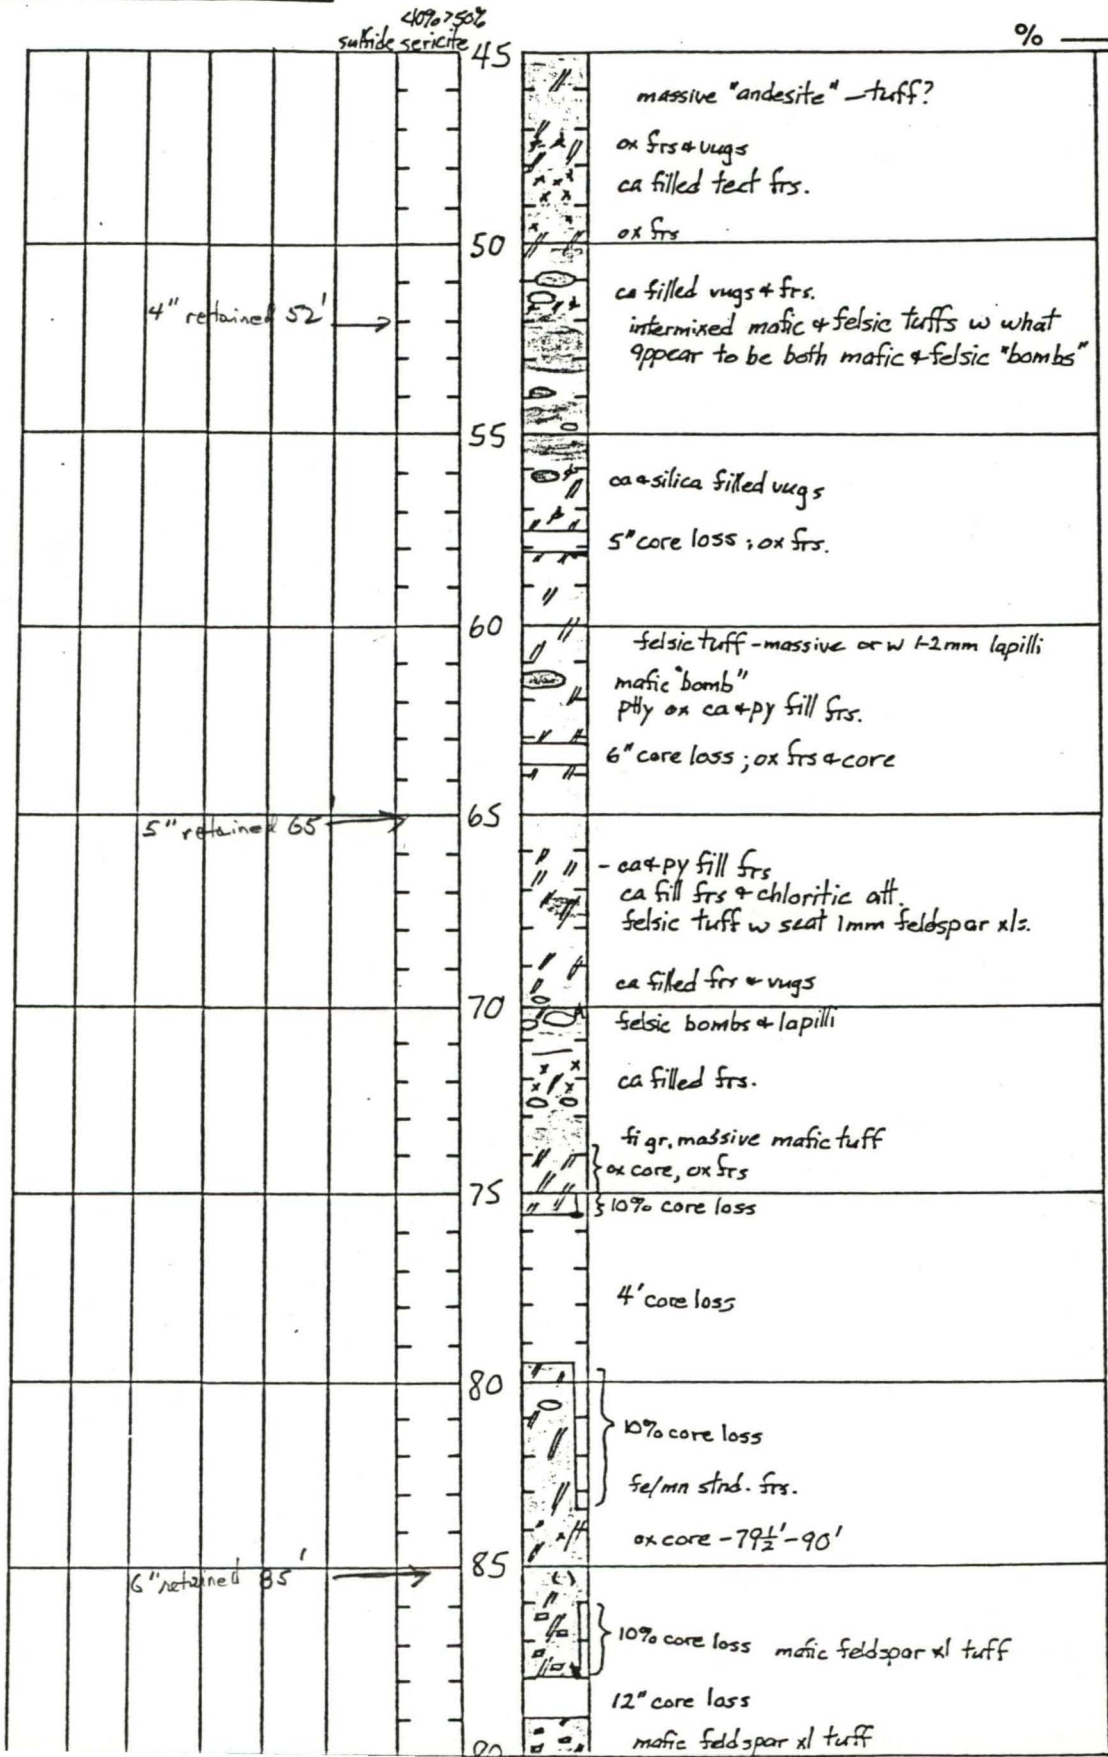 <10% >50%
sulfide sericite
% 
45
massive "andesite" - tuff?
ox frs & vugs
ca filled tect frs.
ox frs
50
ca filled vugs & frs.
4" retained 52'
intermixed mafic & felsic tuffs w what
appear to be both mafic & felsic "bombs"
55
ca & silica filled vugs
5" core loss ; ox frs.
60
felsic tuff - massive or w 1-2mm lapilli
mafic "bomb"
ptly ox ca & py fill frs.
6" core loss ; ox frs & core
65
5" retained 65'
- ca & py fill frs
ca fill frs & chloritic alt.
felsic tuff w scat 1mm feldspar xls.
ca filled frs & vugs
70
felsic bombs & lapilli
ca filled frs.
fi gr, massive mafic tuff
ox core, ox frs
75
10% core loss
4' core loss
80
10% core loss
fe/mn stnd. frs.
ox core - 79½' - 90'
85
6" retained 85'
10% core loss mafic feldspar xl tuff
12" core loss
mafic feldspar xl tuff
90